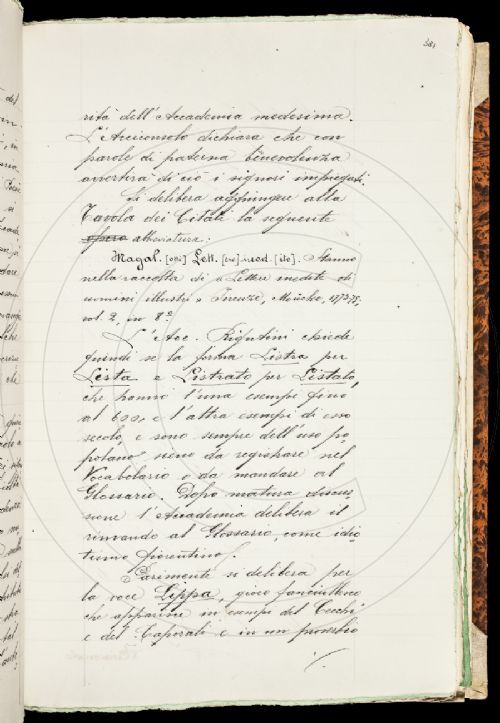 381
rità dell'Accademia medesima.
L'Arciconsolo dichiara che con
parole di paterna benevolenza
avvertirà di ciò i signori impiegati.
Si delibera aggiungere alla
Tavola dei Citati la seguente
opera abbreviatura:
Magal.[otti] Lett.[ere] ined.[ite]. Stanno
nella raccolta di "Lettere inedite di
uomini illustri" Firenze, Moücke, 1773-75,
vol. 2, in 8°.
L'Acc. Rigutini chiede
quindi se la forma Listra per
Lista e Listrato per Listato,
che hanno l'una esempi fino
al 600, e l'altra esempi di esso
secolo, e sono sempre dell'uso po=
polano sieno da registrare nel
Vocabolario o da mandare al
Glossario. Dopo matura discus=
sione l'Accademia delibera il
rinvio al Glossario, come idio=
tismo fiorentino.
Parimente si delibera per
la voce Lippa, gioco fanciullesco
che apparisce in esempi del Cecchi
e del Caporali e in un proverbio
./.